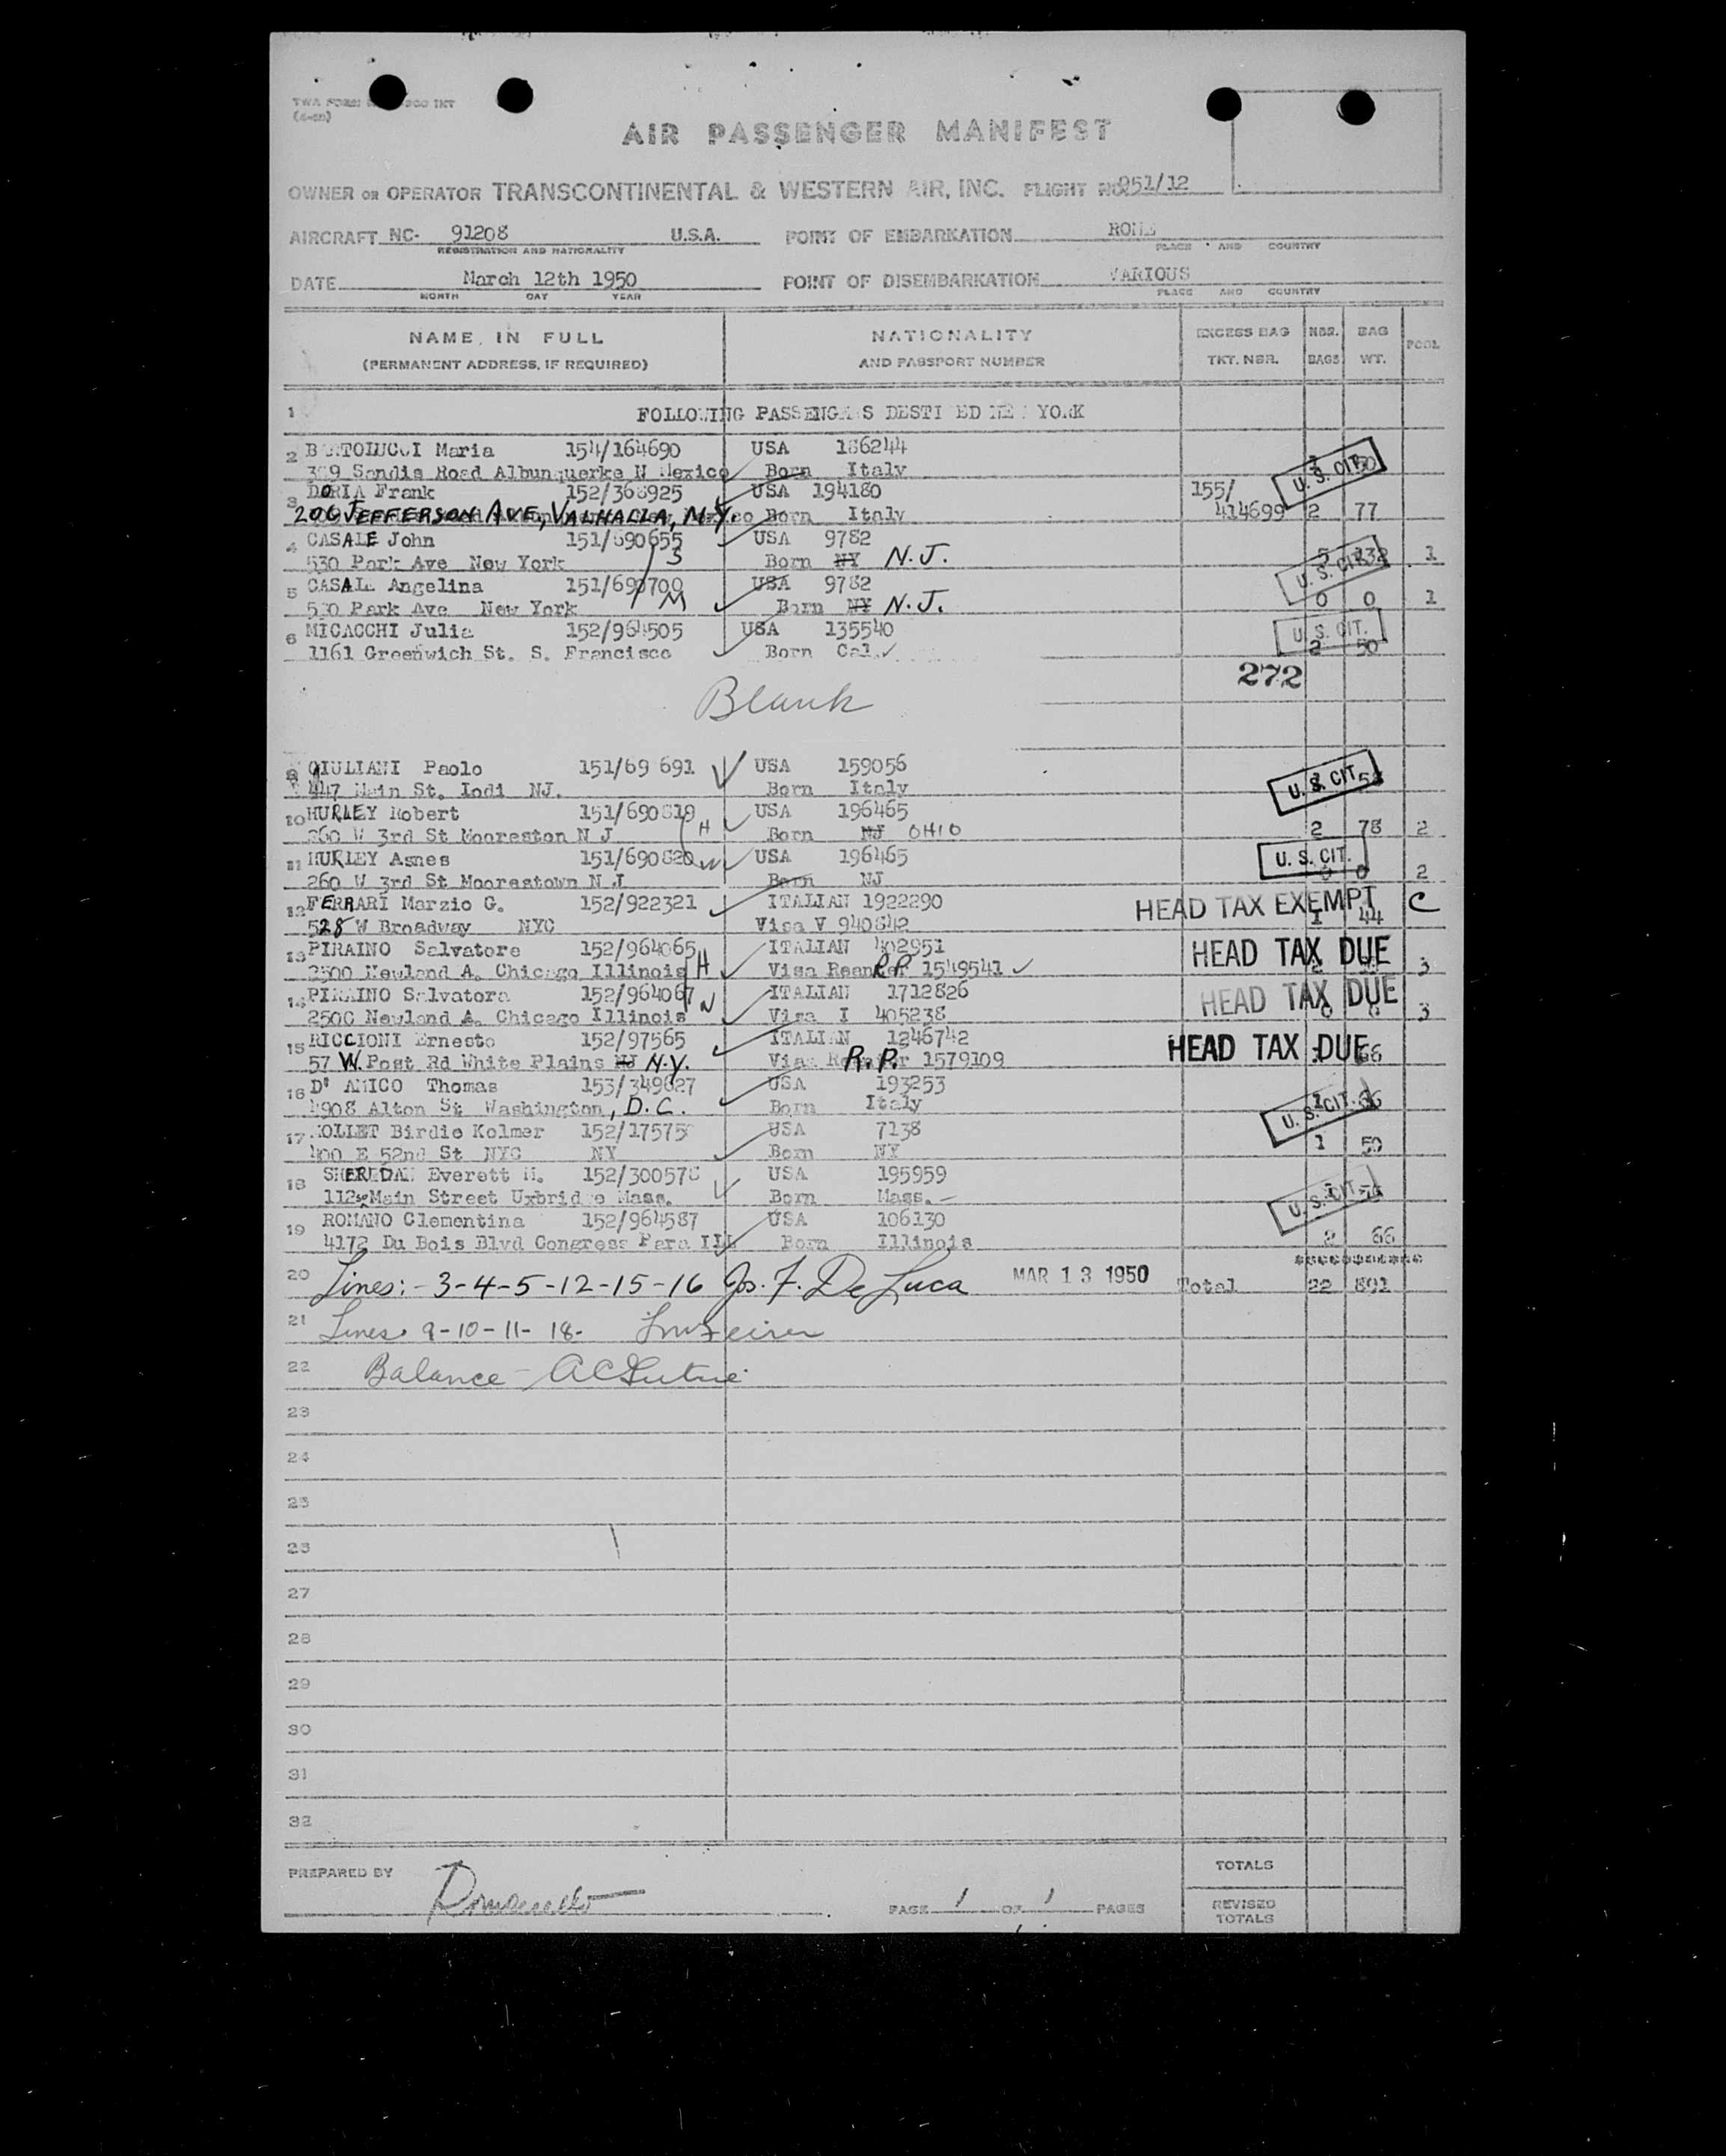 TWA FORM
AIR PASSENGER MANIFEST
OWNER OR OPERATOR TRANSCONTINENTAL & WESTERN AIR, INC. FLIGHT NO 951/12
AIRCRAFT NC- 91208 U.S.A. POINT OF EMBARKATION ROME
REGISTRATION AND NATIONALITY PLACE AND COUNTRY
DATE March 12th 1950 POINT OF DISEMBARKATION VARIOUS
MONTH DAY YEAR PLACE AND COUNTRY
NAME IN FULL NATIONALITY EXCESS BAG NBR. BAG POOL
(PERMANENT ADDRESS, IF REQUIRED) AND PASSPORT NUMBER TKT. NBR. BAGS WT.
1 FOLLOWING PASSENGERS DESTINED NEW YORK
2 BERTOLUCCI Maria 154/164690 USA 186244
Sandia Road Albunquerke N Mexico Born Italy U.S. CIT.
3 DORIA Frank 152/368925 USA 194180 155/
206 JEFFERSON AVE, VALHALLA, N.Y. Born Italy 414699 2 77
4 CASALE John 151/690655 USA 9782
530 Park Ave New York Born NY N.J. 5 132 1
5 CASALE Angelina 151/690700 USA 9782 U.S. CIT.
530 Park Ave New York M Born NY N.J. 0 0 1
6 MICACCHI Julia 152/964505 USA 135540 U.S. CIT.
1161 Greenwich St. S. Francisco Born Cal. 2 50
272
Blank
9 GIULIANI Paolo 151/69 691 USA 159056
447 Main St. Lodi NJ. Born Italy U.S. CIT.
10 HURLEY Robert 151/690819 USA 196465
260 W 3rd St Mooreston N J H Born NJ OHIO 2 78 2
11 HURLEY Agnes 151/690820 USA 196465 U.S. CIT.
260 W 3rd St Moorestown N J Born NJ 0 0 2
12 FERRARI Marzio G. 152/922321 ITALIAN 1922290 HEAD TAX EXEMPT C
528 W Broadway NYC Visa V 940842 1 44
13 PIRAINO Salvatore 152/964065 ITALIAN 402951 HEAD TAX DUE
2500 Newland A. Chicago Illinois H Visa R.P. 1549541 3
14 PIRAINO Salvatora 152/964067 ITALIAN 1712826 HEAD TAX DUE
2500 Newland A. Chicago Illinois Visa I 405238 0 0 3
15 RICCIONI Ernesto 152/97565 ITALIAN 1246742 HEAD TAX DUE
57 W. Post Rd White Plains NJ N.Y. R.P. 1579109 66
16 D' AMICO Thomas 153/349627 USA 193253
4908 Alton St Washington, D.C. Born Italy U.S. CIT.
17 Birdie Kolmer 152/17575 USA 7138
400 E 52nd St NYC NY Born NY 1 50
18 SHERIDAN Everett H. 152/300578 USA 195959
112 Main Street Uxbridge Mass. Born Mass. U.S. CIT.
19 ROMANO Clementina 152/964587 USA 106130
4172 Du Bois Blvd Congress Para Ill Born Illinois 2 66
20 Lines:-3-4-5-12-15-16 Jos. F. De Luca MAR 13 1950 Total 22 891
21 Lines 9-10-11-18-
22 Balance -
23
24
25
26
27
28
29
30
31
32
PREPARED BY TOTALS
PAGE 1 OF 1 PAGES REVISED
TOTALS